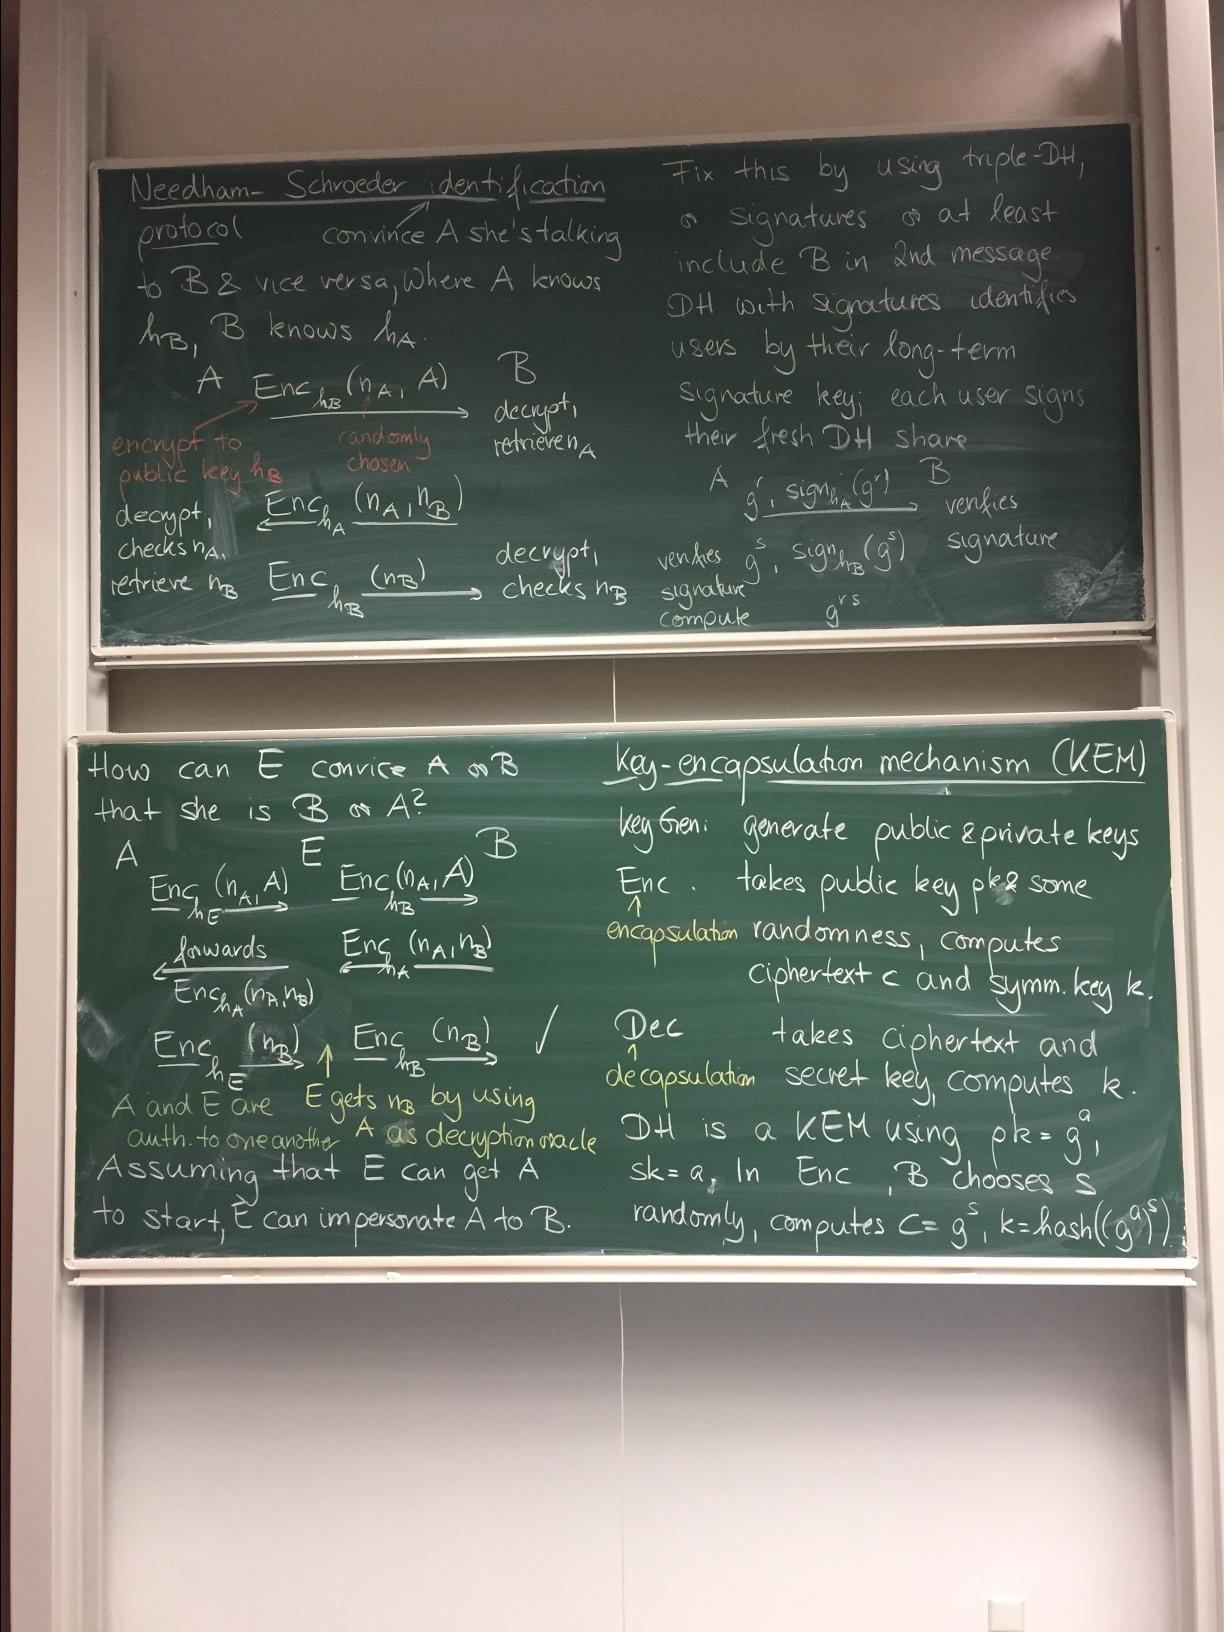 Needham-Schroeder identification
protocol convince A she's talking
to B & vice versa, where A knows
h_B, B knows h_A.
A Enc_{h_B}(n_A, A) B
decrypt,
retrieve n_A
encrypt to
public key h_B
randomly
chosen
Enc_{h_A}(n_A, n_B)
decrypt,
checks n_A,
retrieve n_B
Enc_{h_B}(n_B)
decrypt,
checks n_B
Fix this by using triple-DH,
or signatures or at least
include B in 2nd message.
DH with signatures identifies
users by their long-term
signature key; each user signs
their fresh DH share
A g^r, sign_{h_A}(g^r) B
verifies
signature
verifies g^s, sign_{h_B}(g^s)
signature
compute g^{rs}
How can E convice A or B
that she is B or A?
A E B
Enc_{h_E}(n_A, A) Enc_{h_B}(n_A, A)
forwards Enc_{h_A}(n_A, n_B)
Enc_{h_A}(n_A, n_B)
Enc_{h_E}(n_B) Enc_{h_B}(n_B) ✓
A and E are
auth. to one another
E gets n_B by using
A as decryption oracle
Assuming that E can get A
to start, E can impersonate A to B.
Key-encapsulation mechanism (KEM)
KeyGen: generate public & private keys
Enc. takes public key pk & some
encapsulation randomness, computes
ciphertext c and symm. key k.
Dec takes ciphertext and
decapsulation secret key, computes k.
DH is a KEM using pk = g^a,
sk = a, In Enc, B chooses s
randomly, computes C = g^s, k = hash((g^a)^s)